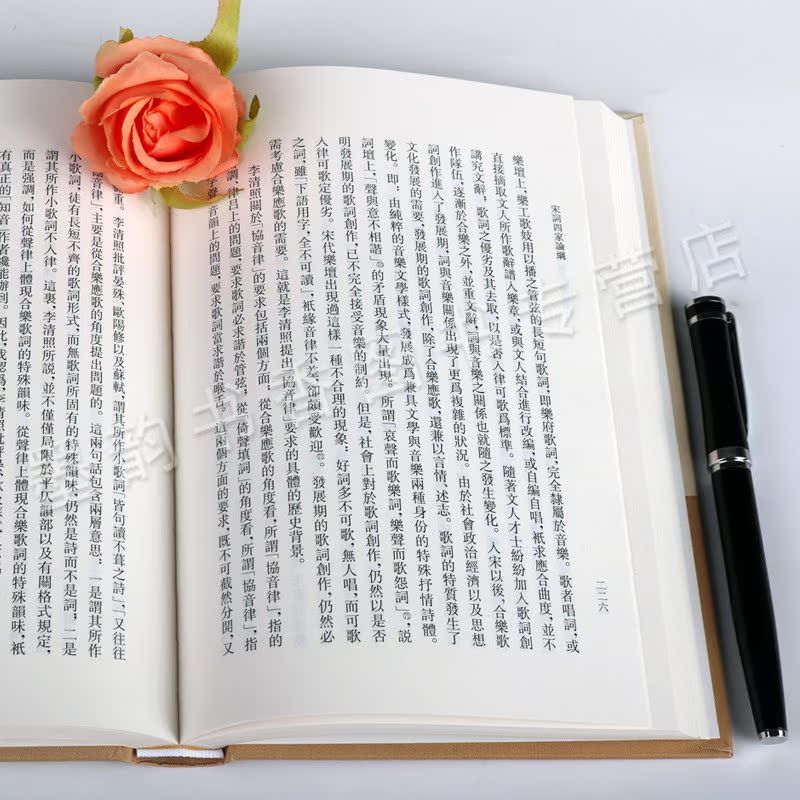 宋詞四家論綱
二二六
樂壇上,樂工歌妓用以播之管弦的長短句歌詞,即樂府歌詞,完全隸屬於音樂。歌者唱詞,或
直接摘取文人所作歌辭譜入樂章,或與文人結合進行改編,或自編自唱,祇求應合曲度,並不
講究文辭,歌詞之優劣及其去取,以是否入律可歌爲標準。隨著文人才士紛紛加入歌詞創
作隊伍,逐漸於合樂之外,並重文辭,詞與音樂之關係也就隨之發生變化。入宋以後,合樂歌
詞創作進入了發展期,詞與音樂關係出現了更爲複雜的狀況。由於社會政治經濟以及思想
文化發展的需要,發展期的歌詞創作,除了合樂應歌,還兼以言情、述志。歌詞的特質發生了
變化。即:由純粹的音樂文學樣式,發展成爲兼具文學與音樂兩種身份的特殊抒情詩體。
詞壇上,「聲與意不相諧」的矛盾現象大量出現。所謂「哀聲而歌樂詞,樂聲而歌怨詞」,説
明發展期的歌詞創作,已不完全接受音樂的制約。但是,社會上對於歌詞創作,仍然以是否
入律可歌定優劣。宋代樂壇出現過這樣一種不合理的現象:好詞多不可歌,無人唱,而可歌
之詞,雖「下語用字,全不可讀」,祇緣音律不差,卻頗受歡迎。發展期的歌詞創作,仍然必
需考慮合樂應歌的需要。這就是李清照提出「協音律」要求的具體的歷史背景。
李清照關於「協音律」的要求包括兩個方面。從合樂應歌的角度看,所謂「協音律」,指的
調、律吕上的問題,要求歌詞必求諧於管弦;從「倚聲填詞」的角度看,所謂「協音律」,指
字聲音韻上的問題,要求歌詞當求諧於喉舌。這兩個方面的要求,既不可截然分開,又
重。李清照批評晏殊、歐陽修以及蘇軾,謂其所作小歌詞「皆句讀不葺之詩」,「又往往
協音律」,主要是從合樂應歌的角度提出問題的。這兩句話包含兩層意思:一是謂其所作
小歌詞,徒有長短不齊的歌詞形式,而無歌詞所固有的特殊韻味,仍然是詩而不是詞;二是
謂其所作小歌詞不入律。這裏,李清照所説,並不僅僅局限於平仄韻部以及有關格式規定,
而是强調,如何從聲律上體現合樂歌詞的特殊韻味。從聲律上體現合樂歌詞的特殊韻味,祇
有真正的「知音」作者纔能辦到。因此,我認爲,李清照批評
韵书香图书专营店